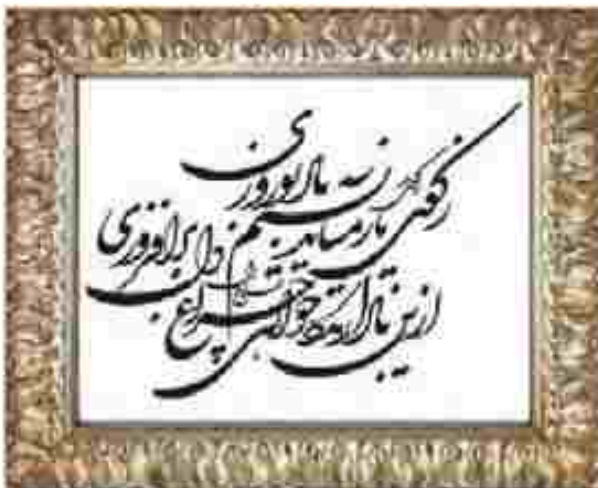 ز کوی یار می‌آید نسیم باد نوروزی
از این باد ار مدد خواهی چراغ دل برافروزی